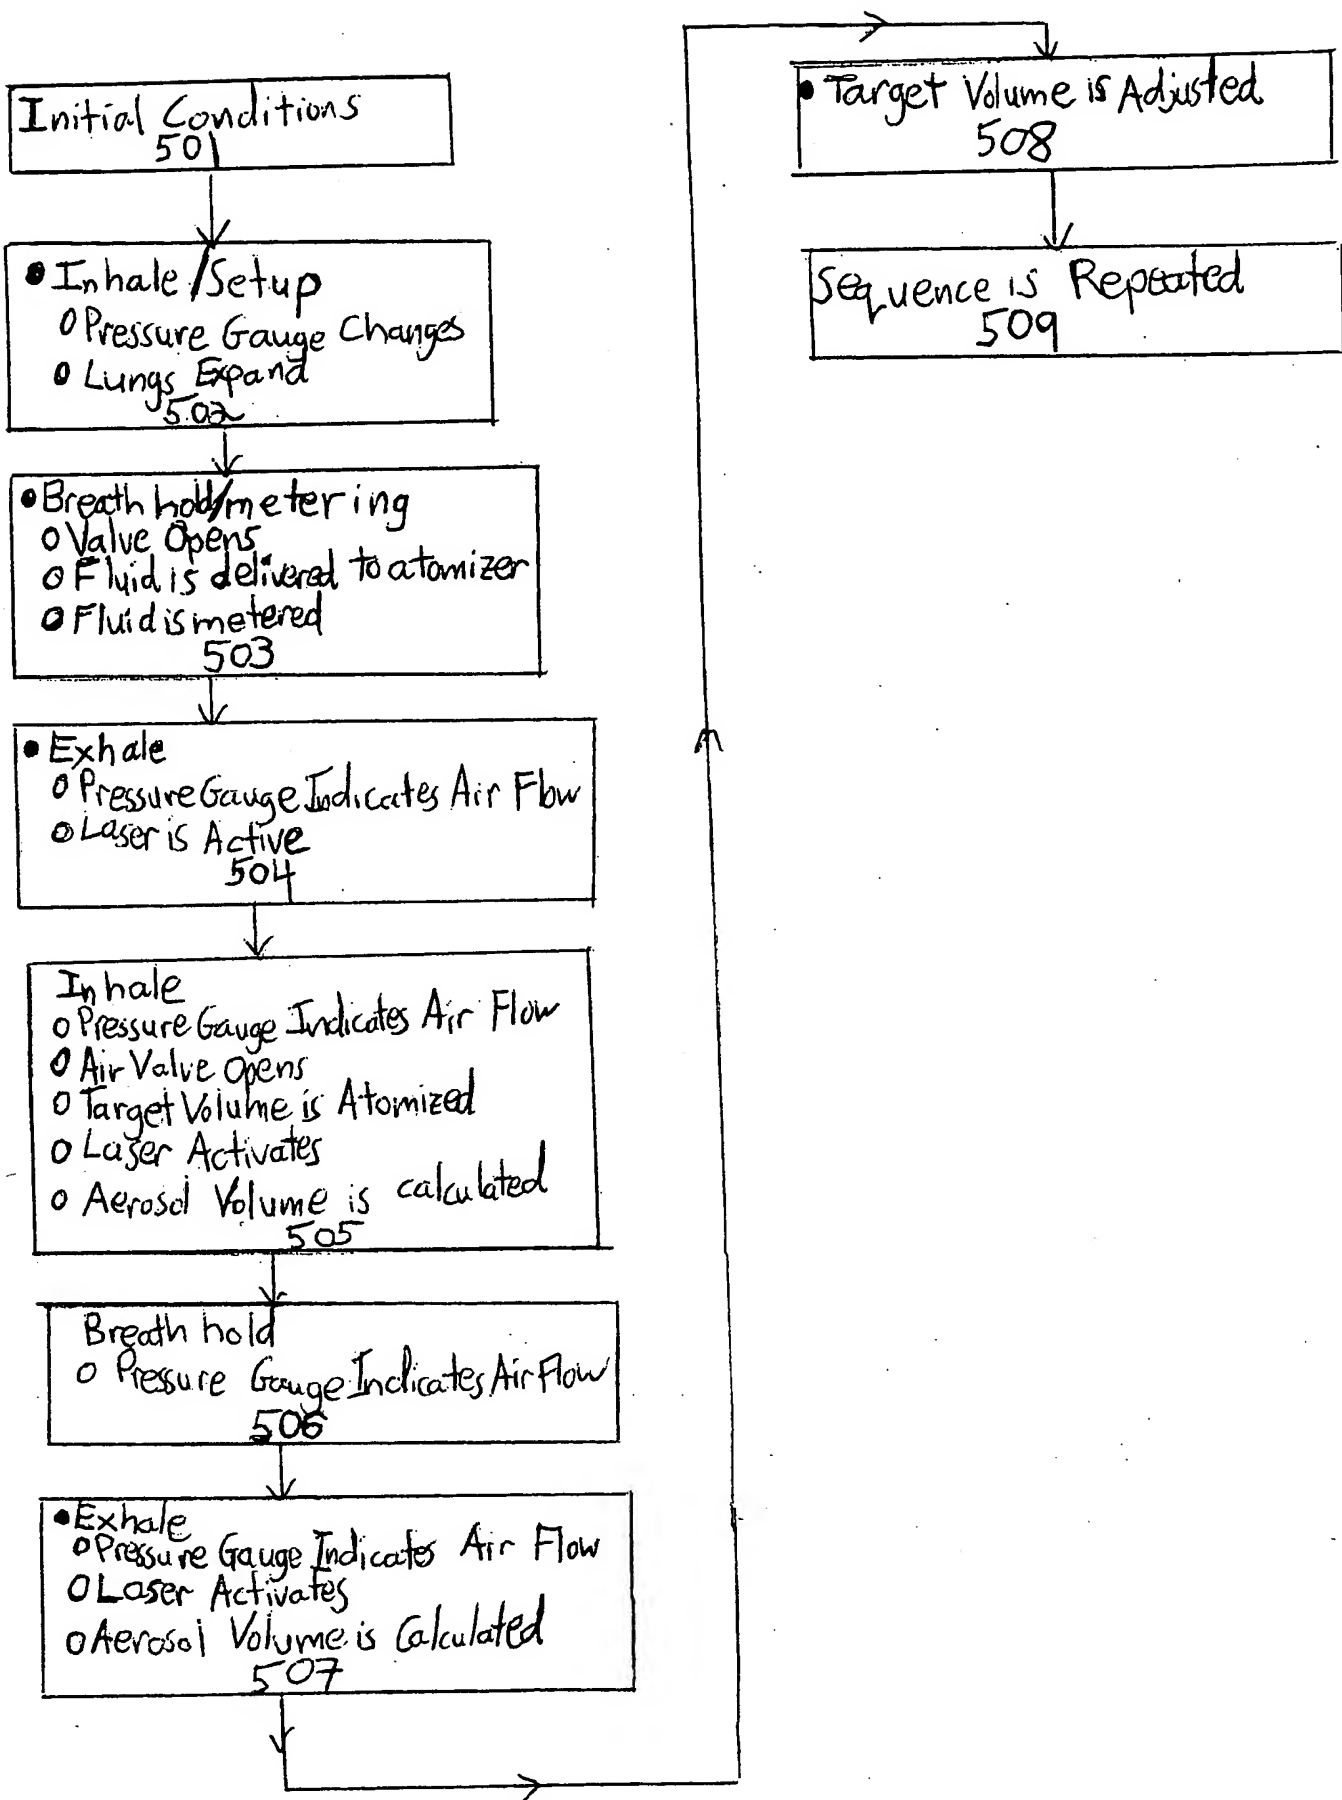 Initial Conditions
501
• Inhale/Setup
o Pressure Gauge Changes
o Lungs Expand
502
• Breath hold/metering
o Valve Opens
o Fluid is delivered to atomizer
o Fluid is metered
503
• Exhale
o Pressure Gauge Indicates Air Flow
o Laser is Active
504
Inhale
o Pressure Gauge Indicates Air Flow
o Air Valve Opens
o Target Volume is Atomized
o Laser Activates
o Aerosol Volume is calculated
505
Breath hold
o Pressure Gauge Indicates Air Flow
506
• Exhale
o Pressure Gauge Indicates Air Flow
o Laser Activates
o Aerosol Volume is Calculated
507
• Target Volume is Adjusted
508
Sequence is Repeated
509